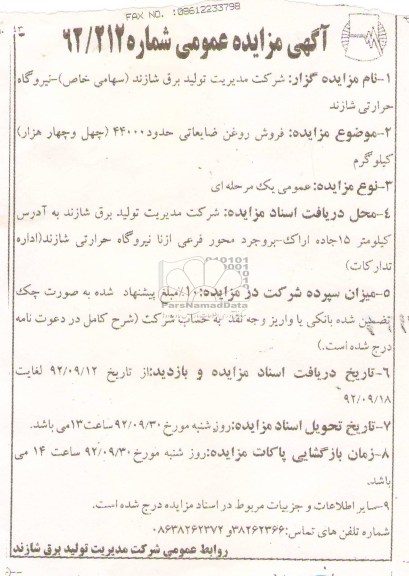 FAX NO. :08612233798
آگهی مزایده عمومی شماره ۹۲/۲۱۲
۱-نام مزایده گزار: شرکت مدیریت تولید برق شازند (سهامی خاص)-نیروگاه
حرارتی شازند
۲-موضوع مزایده: فروش روغن ضایعاتی حدود ۴۴۰۰۰ (چهل وچهار هزار)
کیلوگرم
۳-نوع مزایده: عمومی یک مرحله ای
۴-محل دریافت اسناد مزایده: شرکت مدیریت تولید برق شازند به آدرس
کیلومتر ۱۵جاده اراک-بروجرد محور فرعی ازنا نیروگاه حرارتی شازند(اداره
تدارکات)
۵-میزان سپرده شرکت در مزایده: ۱۰٪مبلغ پیشنهاد شده به صورت چک
تضمین شده بانکی یا واریز وجه نقد به حساب شرکت (شرح کامل در دعوت نامه
درج شده است.)
۶-تاریخ دریافت اسناد مزایده و بازدید:از تاریخ ۹۲/۰۹/۱۲ لغایت
۹۲/۰۹/۱۸
۷-تاریخ تحویل اسناد مزایده:روز شنبه مورخ ۹۲/۰۹/۳۰ ساعت ۱۳می باشد.
۸-زمان بازگشایی پاکات مزایده:روز شنبه مورخ ۹۲/۰۹/۳۰ ساعت ۱۴ می
باشد.
۹-سایر اطلاعات و جزییات مربوط در اسناد مزایده درج شده است.
شماره تلفن های تماس:۳۸۲۶۲۳۶۶و ۰۸۶۳۸۲۶۲۳۷۲
روابط عمومی شرکت مدیریت تولید برق شازند
ParsNamadData